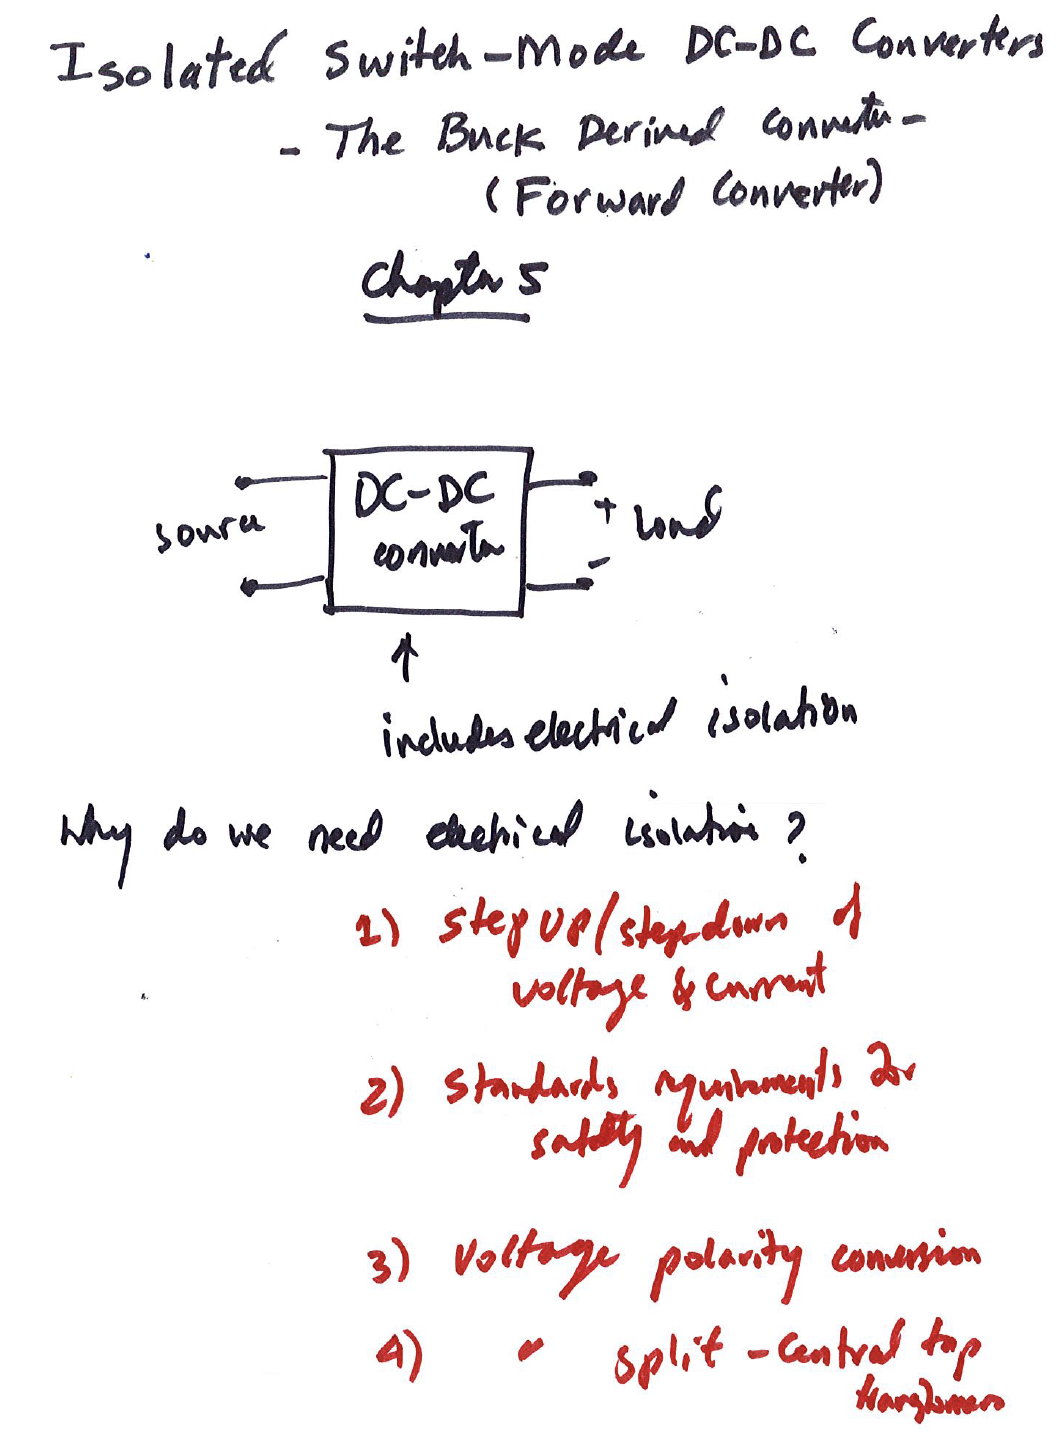 Isolated Switch-Mode DC-DC Converters
- The Buck Derived Converter -
(Forward Converter)
Chapter 5
DC-DC
converter
source
+
Load
-
↑
includes electrical isolation
Why do we need electrical isolation?
1) Step up/step-down of
voltage & current
2) Standards requirements for
safety and protection
3) Voltage polarity conversion
4) " split - central tap
transformers